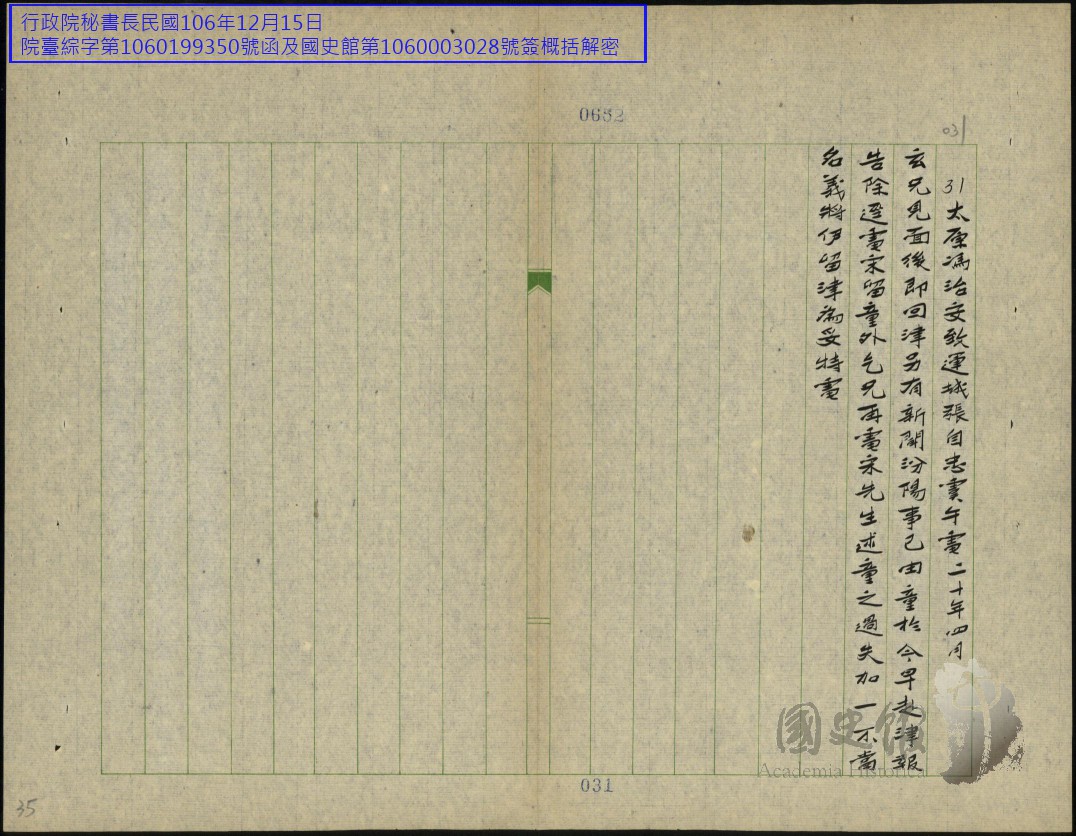 行政院秘書長民國106年12月15日
院臺綜字第1060199350號函及國史館第1060003028號簽概括解密
0652
031
31太原馮治安致運城張自忠電午電二十年四月
玄兄見面後即回津另有新聞汾陽事已由童於今早赴津報
告除逕電宋留童外乞兄再電宋先生述童之過失加一不當
名義將伊留津為妥特電
國史館
Academia Historica
031
35